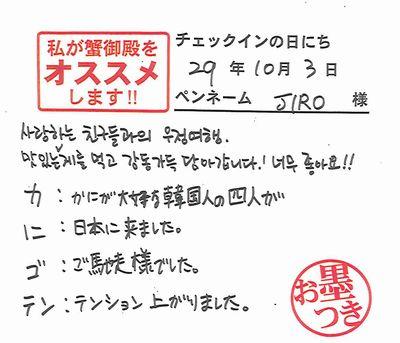 私が蟹御殿を
オススメ
します!!
チェックインの日にち
29 年 10 月 3 日
ペンネーム JIRO 様
사랑하는 친구들과의 우정여행.
맛있는 게를 먹고 감동가득 담아갑니다! 너무 좋아요!!
カ : かにが大好きな韓国人の四人が
ニ : 日本に来ました。
ゴ : ご馳走様でした。
テン : テンション上がりました。
お墨つき